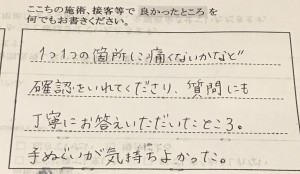 ここちの施術、接客等で 良かったところ を
何でもお書きください。
1つ1つの箇所に痛くないかなど
確認をいれてくださり、質問にも
丁寧にお答えいただいたところ。
手ぬぐいが気持ちよかった。